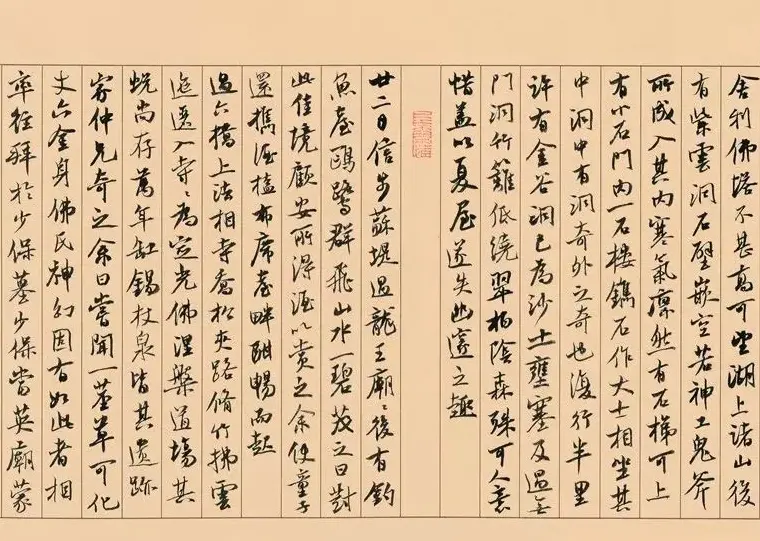 舍利佛塔不甚高可望湖上诸山後
有紫雲洞石壁嵌空若神工鬼斧
所成入其内寒氣凛然有石梯可上
有小石門内一石楼鐫石作大士相坐其
中洞中有洞奇外之奇也復行半里
许有金谷洞已為沙土壅塞及過無
門洞竹籬低繞翠柏陰森殊可人意
惜蓋以夏屋遂失幽邃之趣
廿二日信步蘇堤過龍王廟〻後有釣
魚臺鷗鹭群飛山水一碧茂之曰對
此佳境顧安所得酒以賞之余使童子
還携酒榼布席臺畔酣暢而起
過六橋上法相寺喬松夾路脩竹拂雲
迤邐入寺〻為定光佛涅槃道場其
蜕尚存萬年缸錫杖泉皆其遺跡
家仲兄奇之余曰嘗聞一莖草可化
丈六金身佛氏神幻固有如此者相
率徑拜於少保墓少保當英廟蒙